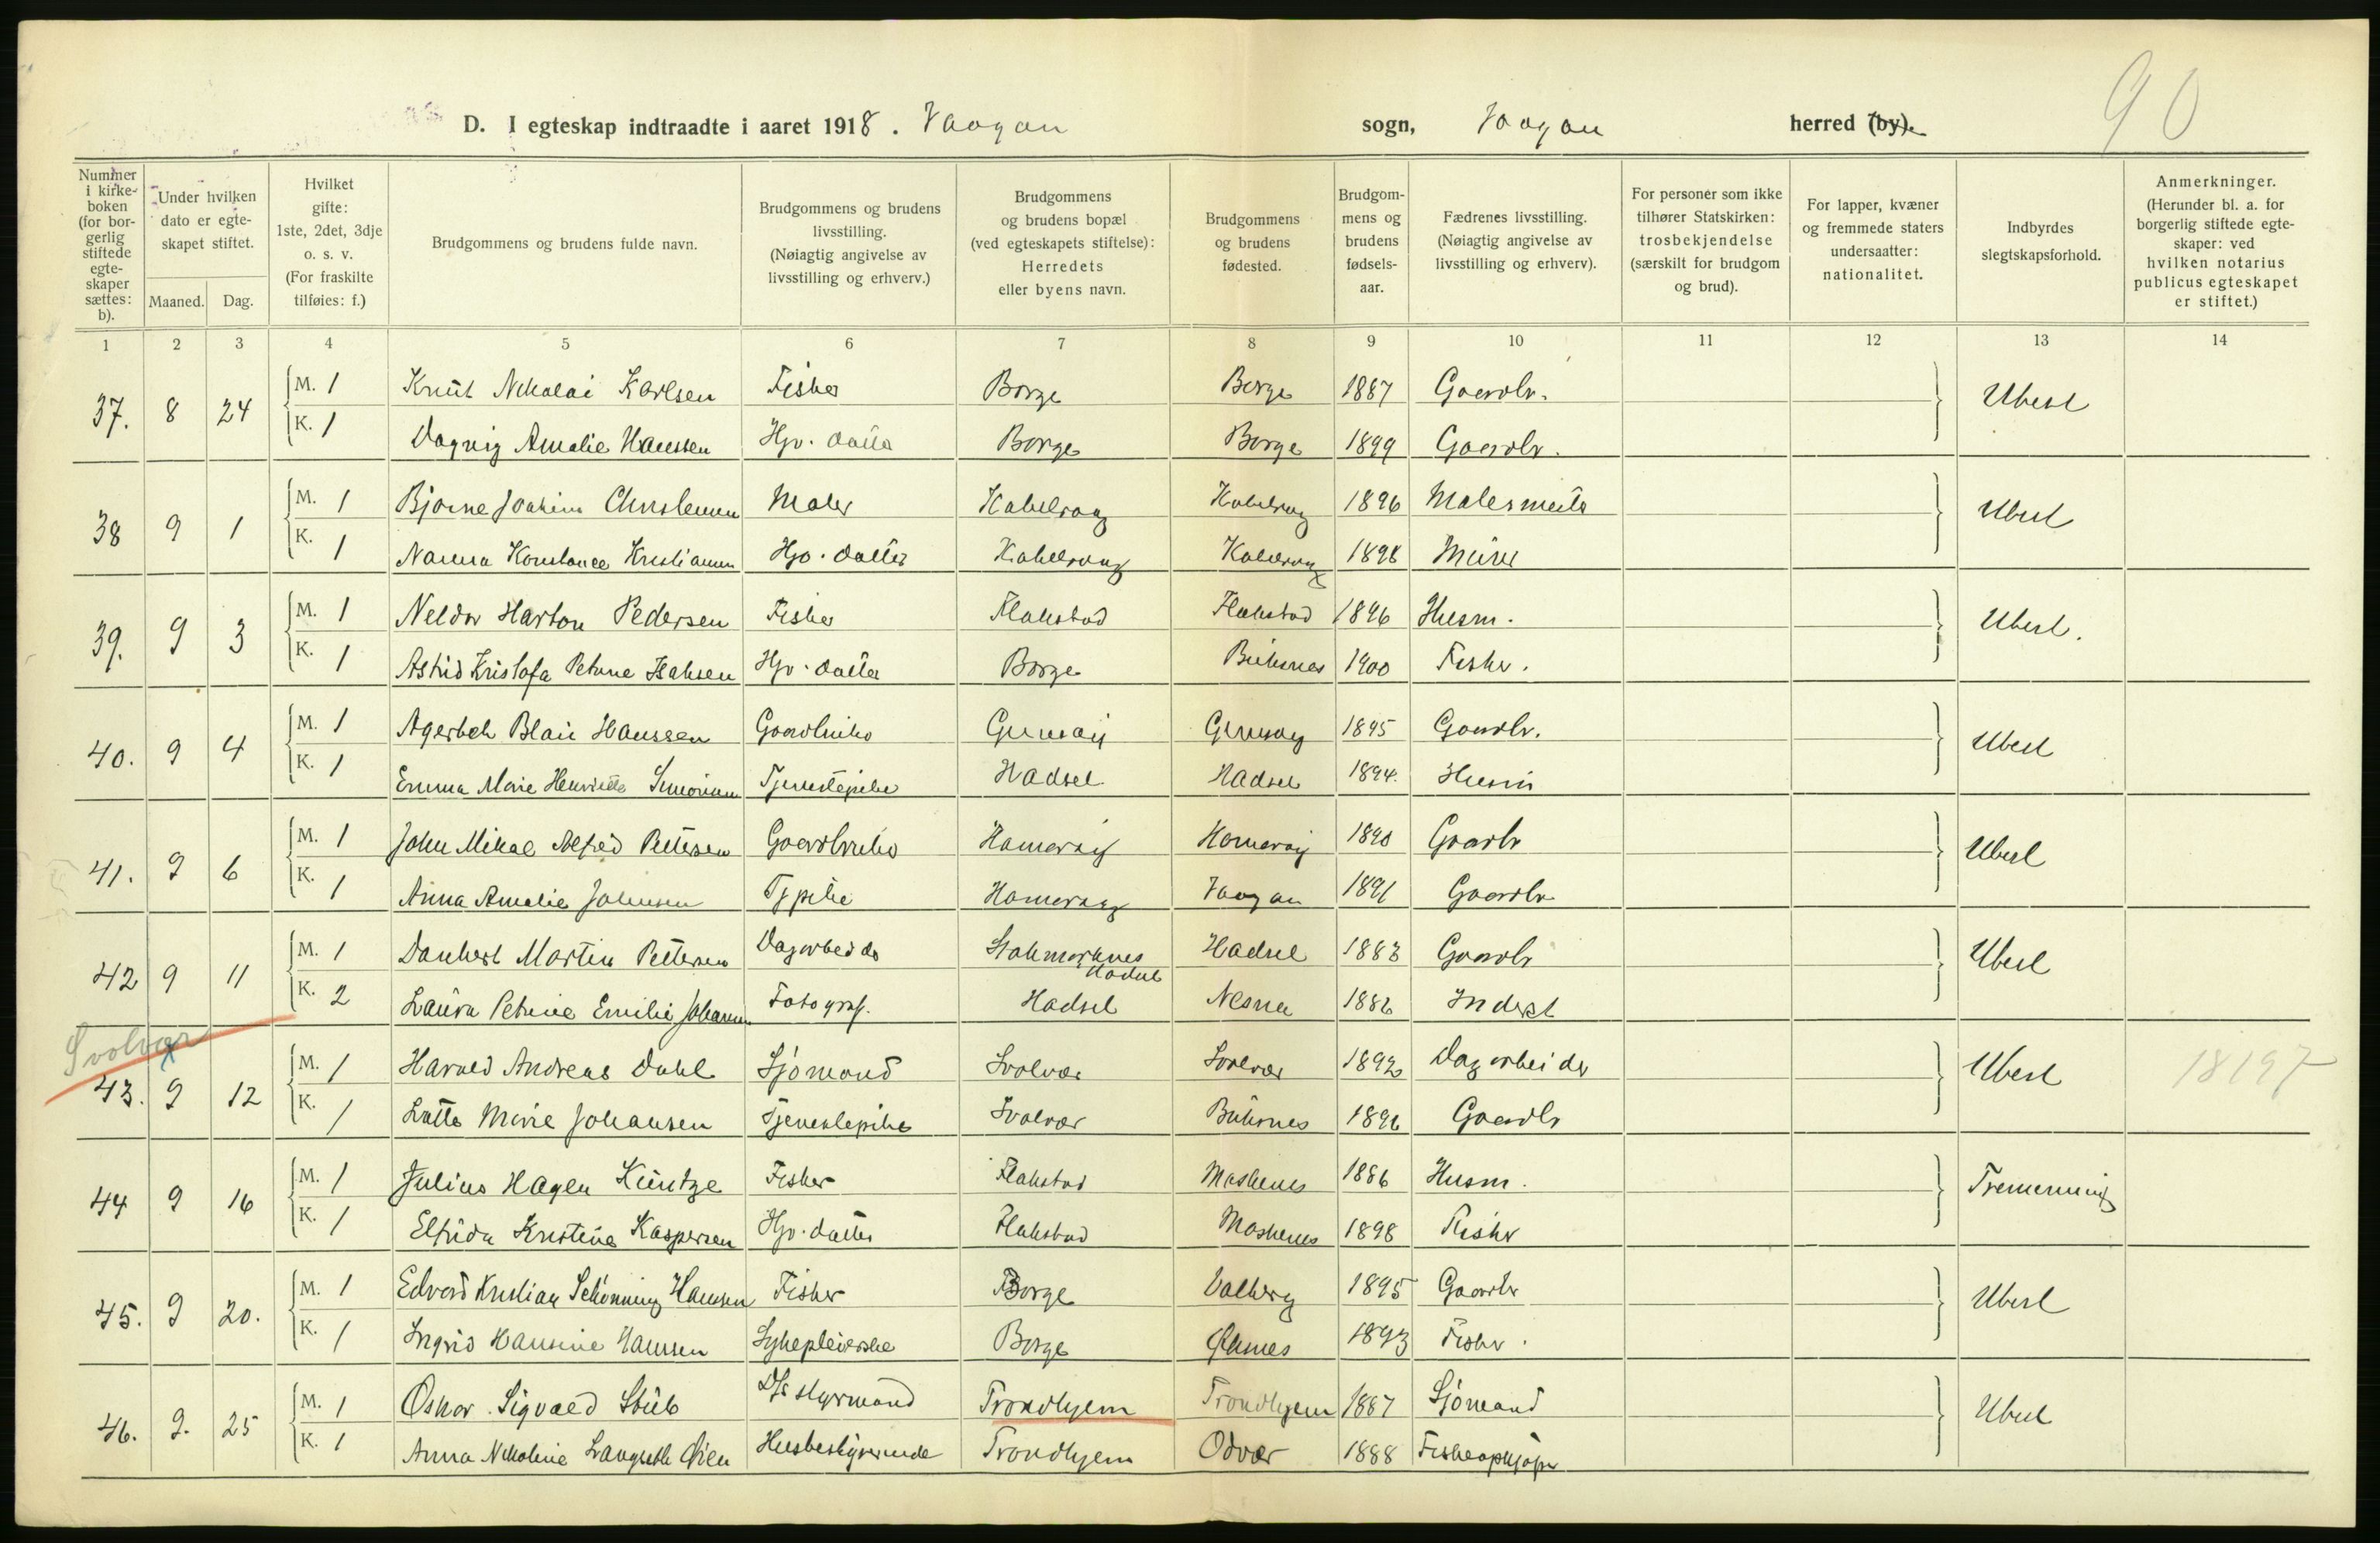 90
D. I egteskap indtraadte i aaret 1918. Vaagan sogn, Vaagan herred (by).
Nummer i kirkeboken (for borgerlig stiftede egteskaper sættes: b).
Under hvilken dato er egteskapet stiftet.
Maaned. Dag.
Hvilket gifte: 1ste, 2det, 3dje o. s. v. (For fraskilte tilføies: f.)
Brudgommens og brudens fulde navn.
Brudgommens og brudens livsstilling. (Nøiagtig angivelse av livsstilling og erhverv.)
Brudgommens og brudens bopæl (ved egteskapets stiftelse): Herredets eller byens navn.
Brudgommens og brudens fødested.
Brudgommens og brudens fødselsaar.
Fædrenes livsstilling. (Nøiagtig angivelse av livsstilling og erhverv).
For personer som ikke tilhører Statskirken: trosbekjendelse (særskilt for brudgom og brud).
For lapper, kvæner og fremmede staters undersaatter: nationalitet.
Indbyrdes slegtskapsforhold.
Anmerkninger. (Herunder bl. a. for borgerlig stiftede egteskaper: ved hvilken notarius publicus egteskapet er stiftet.)
1 2 3 4 5 6 7 8 9 10 11 12 13 14
37. 8 24 M. 1 Knut Nikolai Karlsen Fisker Borge Borge 1887 Gaardbr. Ubesl
K. 1 Dagny Amalie Hanssen Hjv. datter Borge Borge 1899 Gaardbr.
38 9 1 M. 1 Bjarne Joakim Christensen Maler Kabelvaag Kabelvaag 1896 Malermester Ubesl
K. 1 Nanna Konstance Kristiansen Hjv. datter Kabelvaag Kabelvaag 1898 Murer
39. 9 3 M. 1 Neldor Harton Pedersen Fisker Flakstad Flakstad 1896 Husm. Ubesl.
K. 1 Astrid Kristofa Petrine Isaksen Hjv. datter Borge Buksnes 1900 Fisker.
40. 9 4 M. 1 Agerbek Blair Hanssen Gaardbruker Gimsøy Gimsøy 1895 Gaardbr. Ubesl
K. 1 Emma Marie Henriette Simonsen Tjenestepike Hadsel Hadsel 1894. Husm
41. 9 6 M. 1 John Mikal Alfred Pettersen Gaardbruker Hamarøy Hamarøy 1890 Gaardbr Ubesl
K. 1 Anna Amalie Johnsen Tjpike Hamarøy Vaagan 1891 Gaardbr
42 9 11 M. 1 Danbert Martin Pettersen Dagarbeider Stokmarknes Hadsel Hadsel 1883 Gaardbr Ubesl
K. 2 Laura Petrine Emilie Johansen Fotograf. Hadsel Nesna 1886 Inderst
Svolvær
43. 9 12 M. 1 Harald Andreas Dahl Sjömand Svolvær Svolvær 1892 Dagarbeider Ubesl 18197
K. 1 Lotte Marie Johansen Tjenestepike Svolvær Buksnes 1896 Gaardbr
44 9 16 M. 1 Julius Hagen Küntze Fisker Flakstad Moskenes 1886 Husm. Tremenning
K. 1 Elfrida Kristine Kaspersen Hjv. datter Flakstad Moskenes 1898 Fisker
45. 9 20. M. 1 Edvard Kristian Schönning Hansen Fisker Borge Valberg 1895 Gaardbr Ubesl
K. 1 Ingrid Hansine Hansen Sykepleierske Borge 1893 Fisker.
46. 9. 25 M. 1 Oskar Sigvald Stub styrmand Trondhjem Trondhjem 1887 Sjömand Ubesl
K. 1 Anna Nikoline Øien Husbestyrerinde Trondhjem Odvær 1888 Fiskeopkjöper